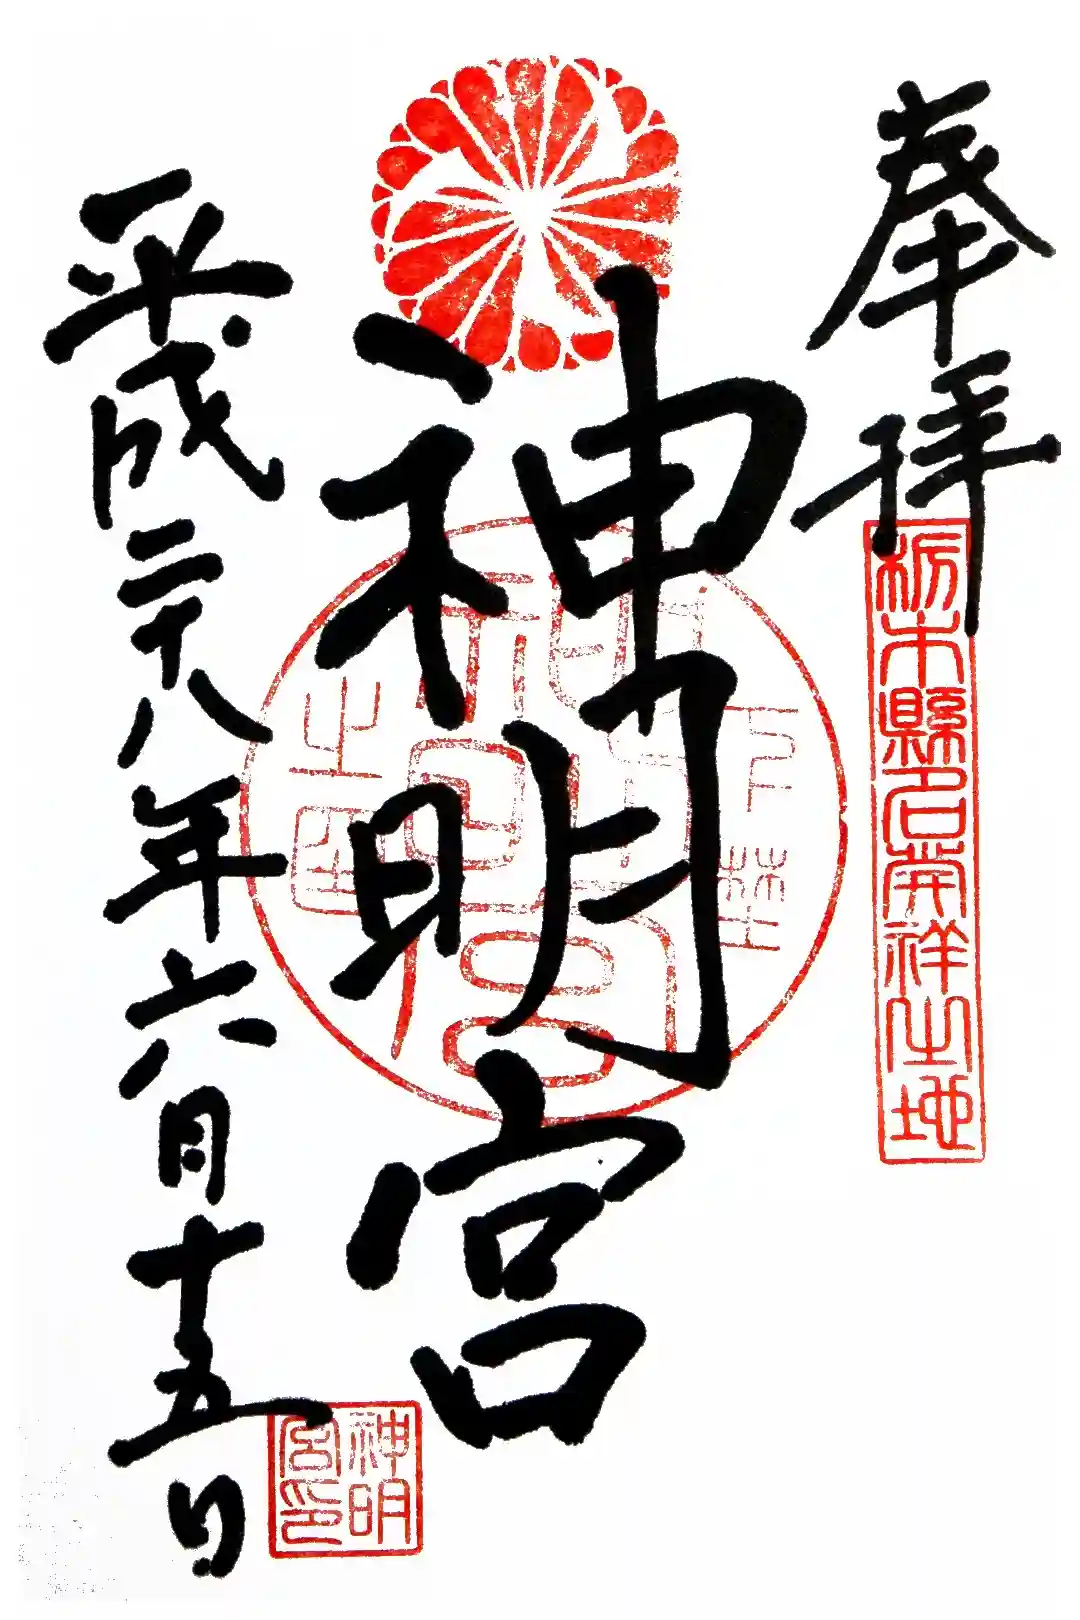 奉拝
栃木縣名発祥之地
神明宮
平成二十八年六月十五日
神明
宮印